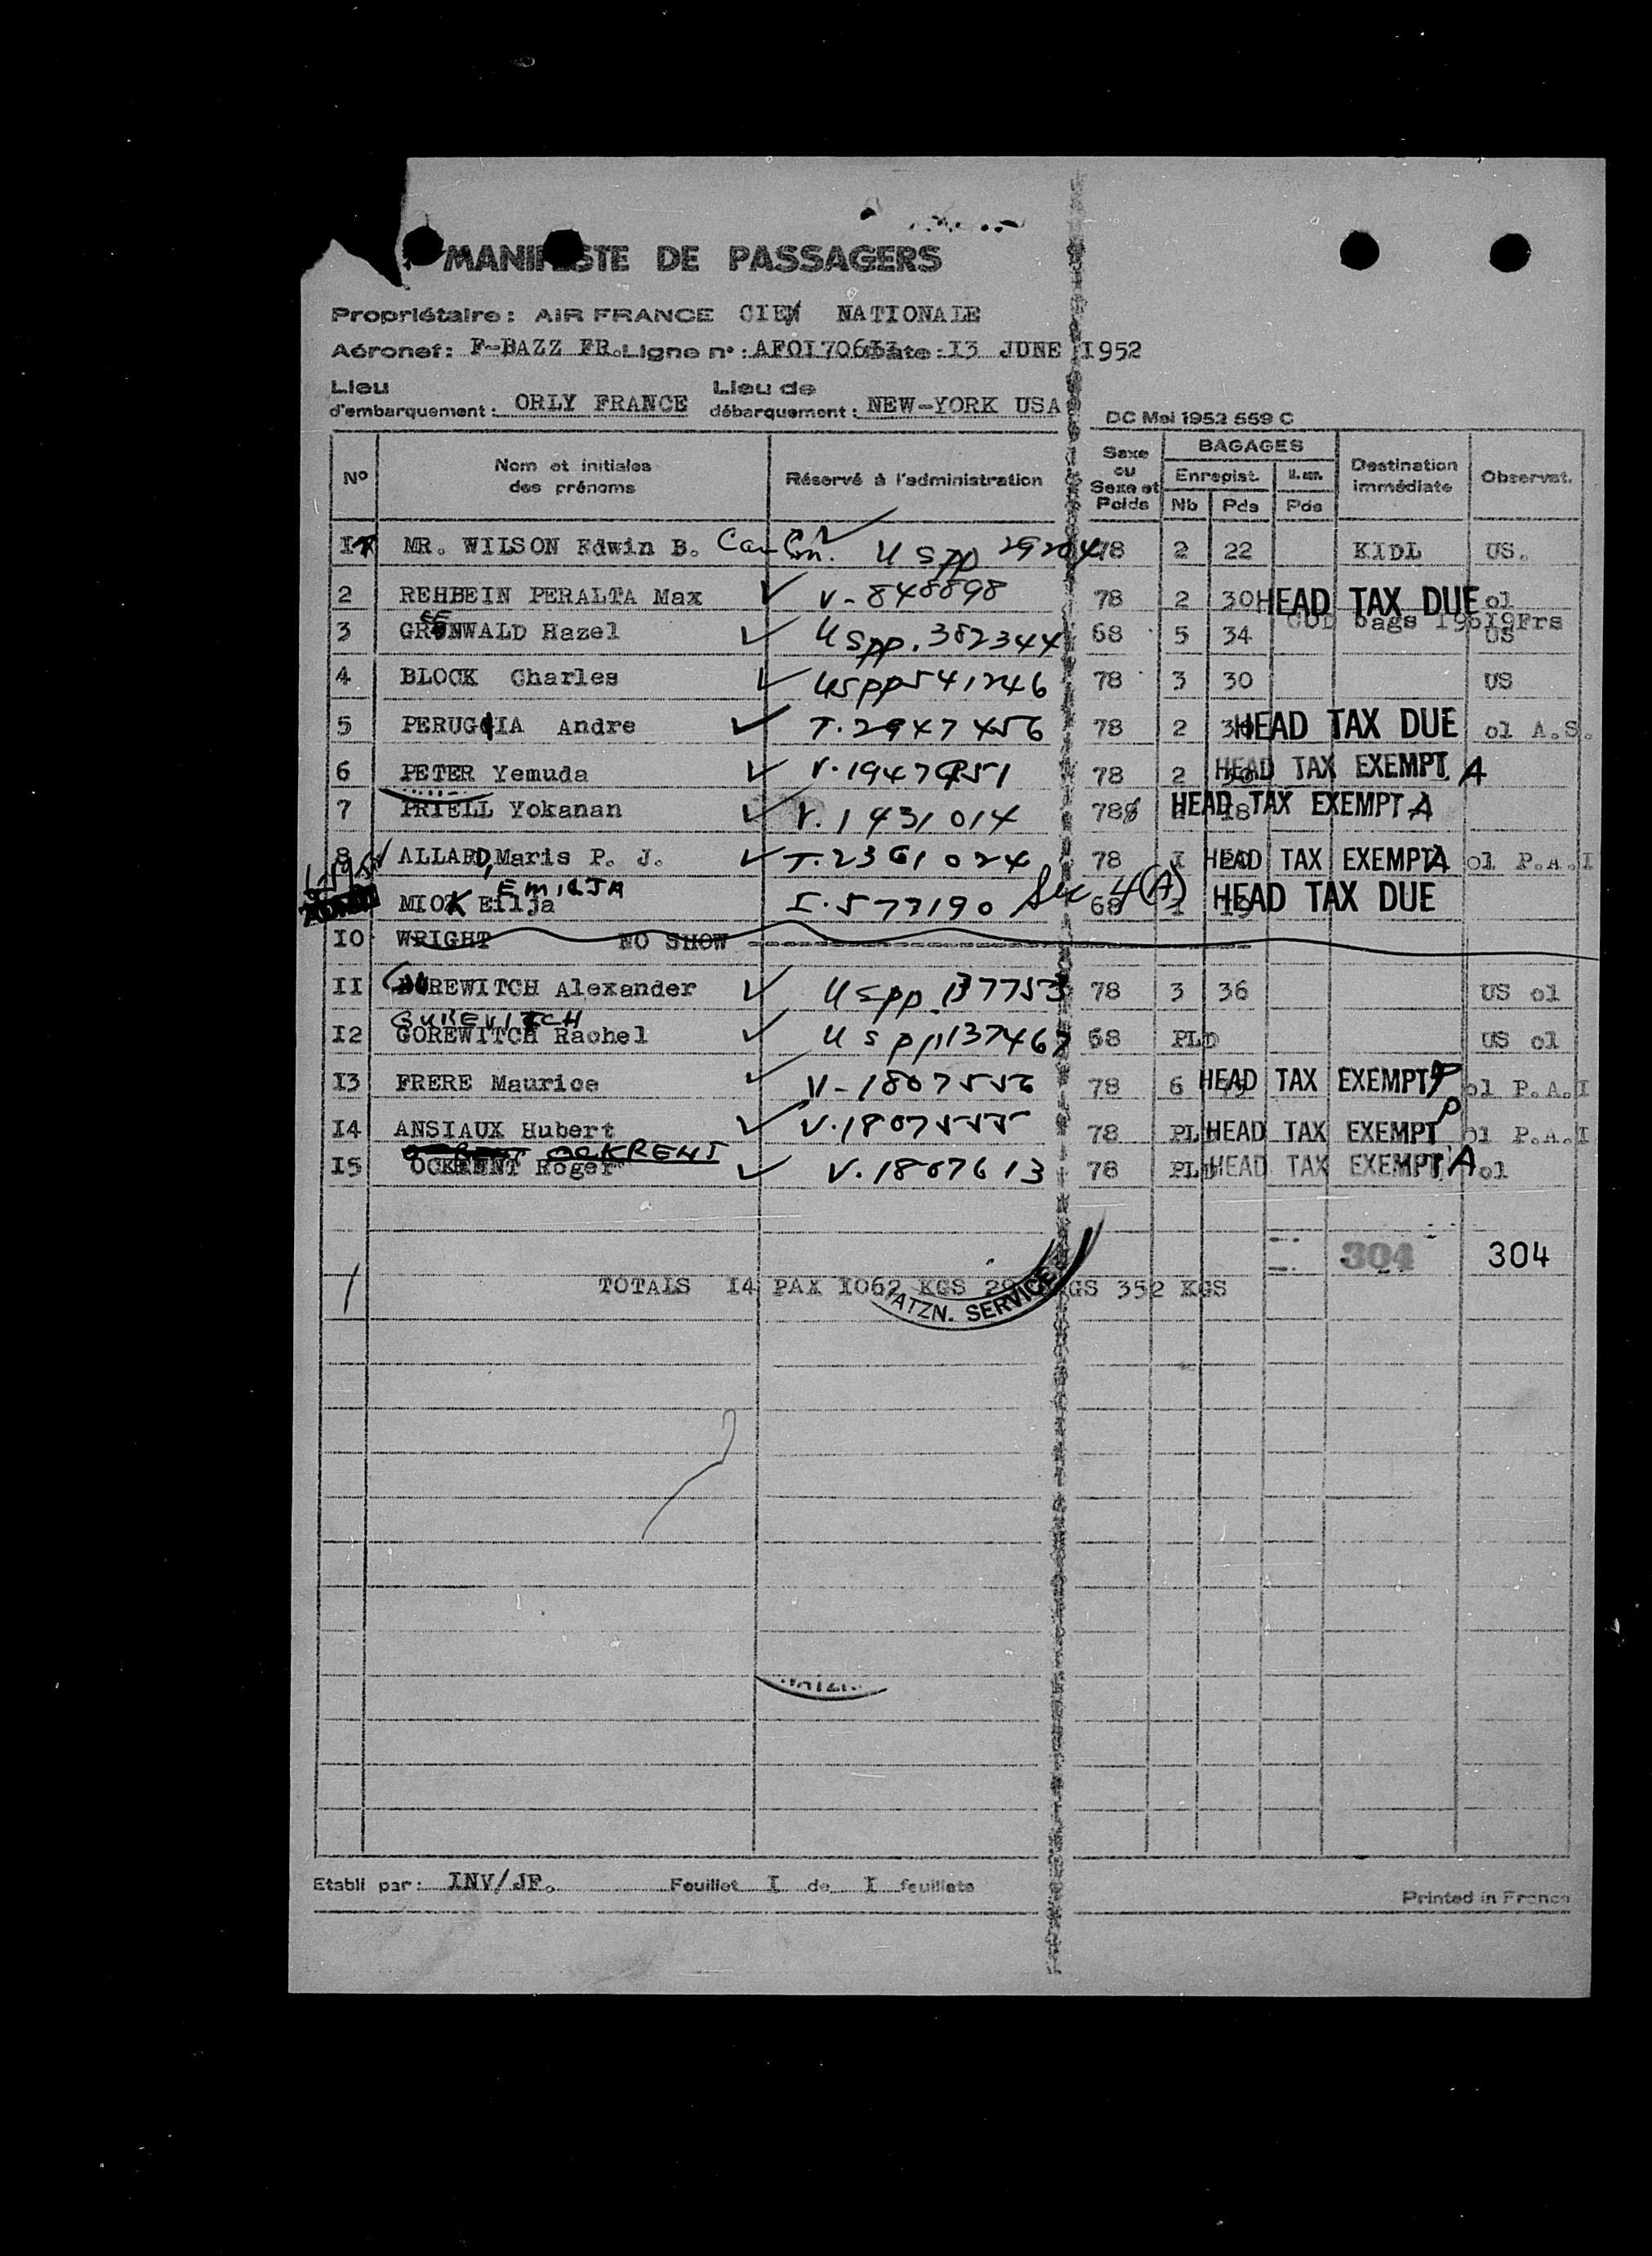 MANIFESTE DE PASSAGERS
Propriétaire: AIR FRANCE CIEN NATIONALE
Aéronef: F-BAZZ FR. Ligne n°: AF0170613 Date: I3 JUNE I952
Lieu d'embarquement: ORLY FRANCE Lieu de débarquement: NEW-YORK USA
DC Mai 1952 559 C
N° Nom et initiales des prénoms Réservé à l'administration Sexe ou Sexe et Poids BAGAGES Enregist. Nb Pds Pds Destination immédiate Observat.
I MR. WILSON Edwin B. U S pp 29204 78 2 22 KIDL US.
2 REHBEIN PERALTA Max V-848898 78 2 30 HEAD TAX DUE ol
COD bags I96I9Frs
3 GREENWALD Hazel US pp. 382344 68 5 34 US
4 BLOCK Charles US pp 541246 78 3 30 US
5 PERUGIA Andre T.2947456 78 2 HEAD TAX DUE ol A.S.
6 PETER Yemuda V.1947951 78 2 HEAD TAX EXEMPT A
7 PRIELL Yokanan V.1431014 78 I8 HEAD TAX EXEMPT A
8 ALLARD, Maris P. J. T.2361024 78 I HEAD TAX EXEMPT A ol P.A.I
EMILJA
MIOK Eilja I.577190 Sec 4(A) 68 I HEAD TAX DUE
I0 WRIGHT NO SHOW
II GUREWITCH Alexander US pp. 137753 78 3 36 US ol
GUREVITCH
I2 GOREWITCH Rachel U S pp 137467 68 PLD US ol
I3 FRERE Maurice V-1807556 78 6 HEAD TAX EXEMPT P ol P.A.I
I4 ANSIAUX Hubert V.1807555 78 PLD HEAD TAX EXEMPT P ol P.A.I
OCKRENT
I5 OCKRENT Roger V.1807613 78 PLD HEAD TAX EXEMPT A ol
304 304
TOTALS I4 PAX I062 KGS 352 KGS
ATZN. SERVICE
Etabli par: INV/JF. Feuillet I de I feuillets
Printed in France